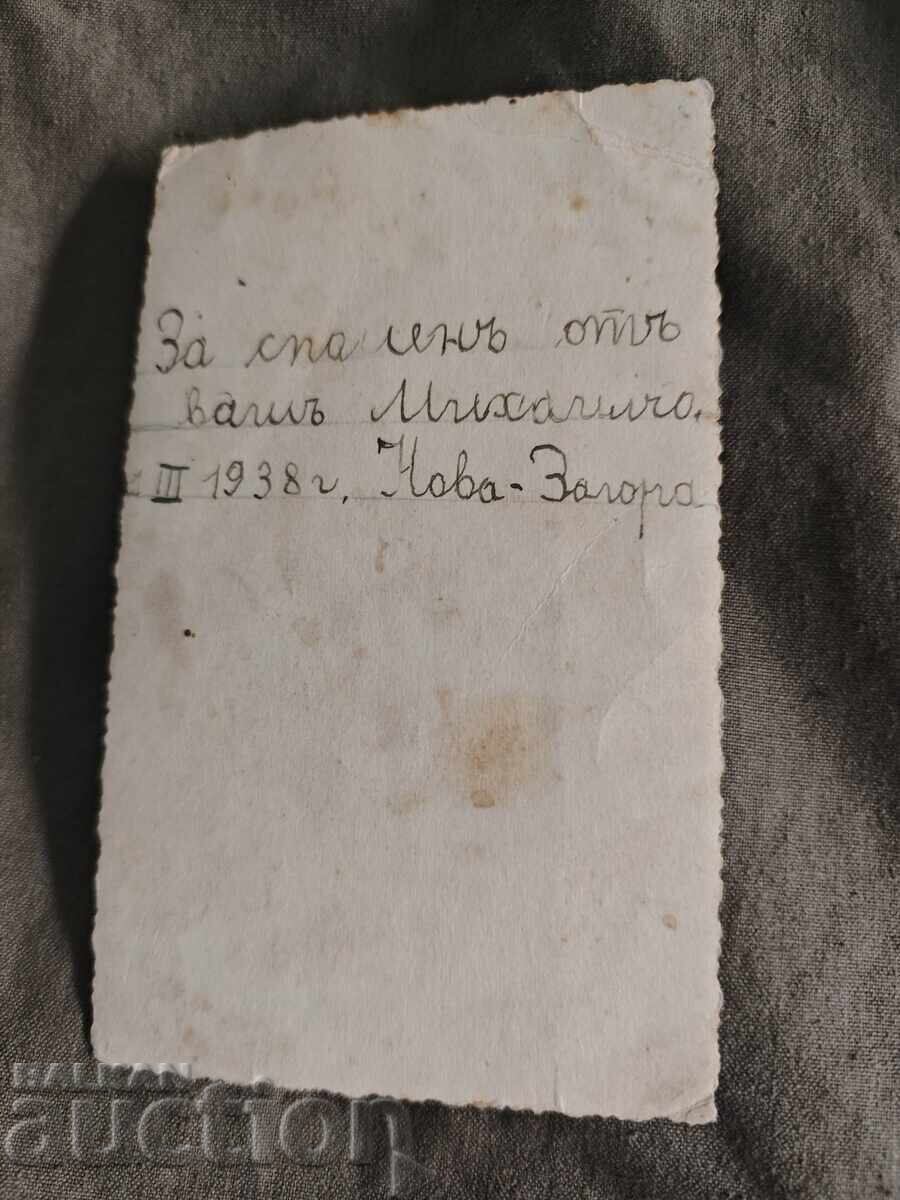 За спаменъ отъ
вашъ Михаилчо.
III 1938 г. Нова-Загора
НАПРАВИ
auction